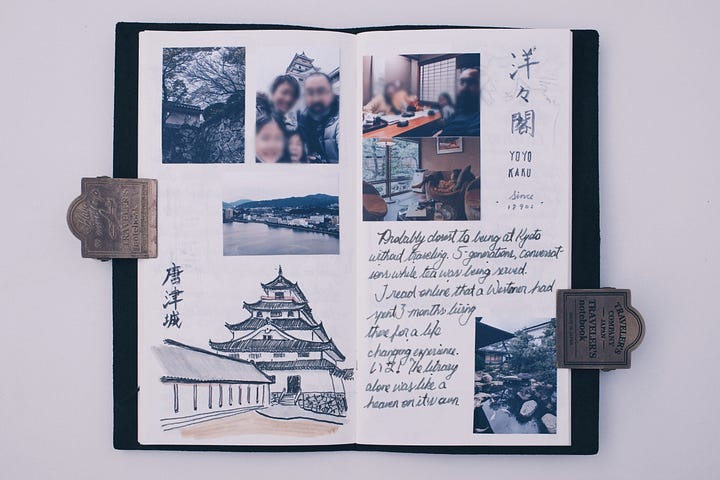 唐津城
洋々閣
YOYO
KAKU
since
Probably closest to being at Kyoto
without traveling. 5-generations, conversat-
ions while tea was being served.
I read online, that a Westoner had
spent 3 months living
there for a life
changing experience.
The library
alone was like a
heaven on it's own
TRAVELER'S
notebook
TRAVELER'S
COMPANY
JAPAN
TRAVELER'S
notebook